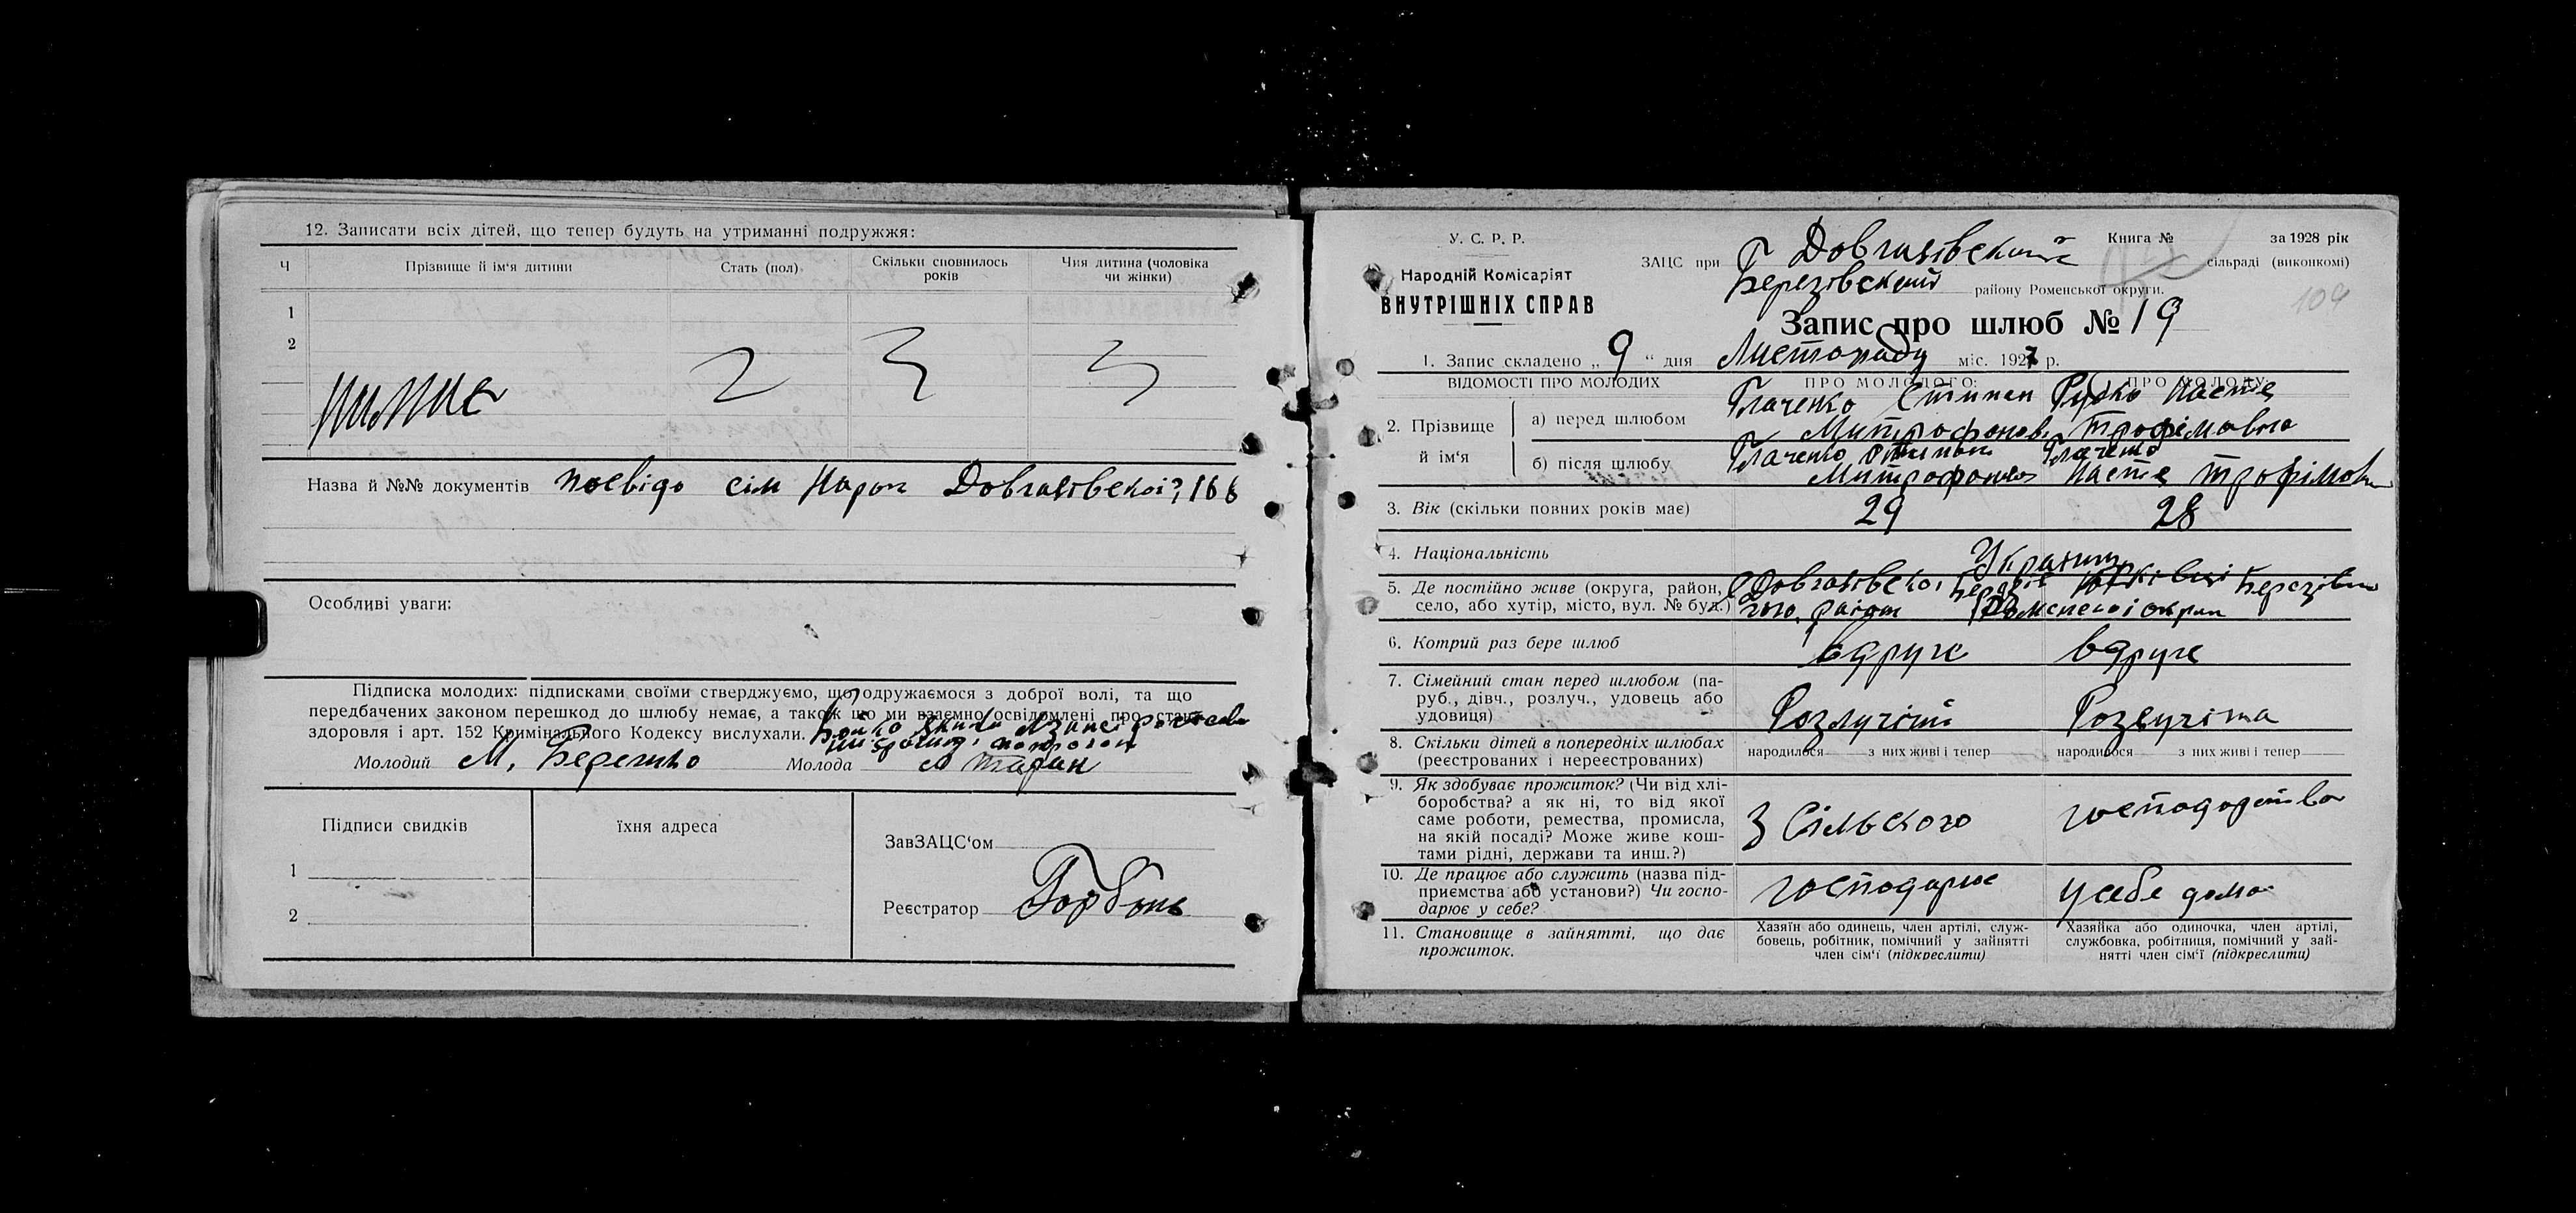 12. Записати всіх дітей, що тепер будуть на утриманні подружжя:
Ч Прізвище й ім'я дитини Стать (пол) Скільки сповнилось років Чия дитина (чоловіка чи жінки)
1
2
Назва й №№ документів посвідо сім Нарок Довгалівської
Особливі уваги:
Підписка молодих: підписками своїми стверджуємо, що одружаємося з доброї волі, та що
передбачених законом перешкод до шлюбу немає, а також що ми взаємно освідомлені про стан
здоровля і арт. 152 Кримінального Кодексу вислухали.
Молодий М, Молода Таран
Підписи свидків їхня адреса
ЗавЗАЦС'ом
1
Реєстратор Горбонь
2
У. С. Р. Р.
Народній Комісаріят
ВНУТРІШНІХ СПРАВ
Книга № за 1928 рік
ЗАЦС при Довгалівський сільраді (виконкомі)
Березівський району Роменської округи.
104
Запис про шлюб № 19
1. Запис складено „ 9 “ дня Листопаду міс. 1927 р.
ВІДОМОСТІ ПРО МОЛОДИХ ПРО МОЛОДОГО: ПРО МОЛОДУ:
2. Прізвище й ім'я
а) перед шлюбом Ткаченко Степан Митрофонов Рудко Настя Трофімовна
б) після шлюбу Ткаченко Степан Митрофонов Ткаченко Настя Трофімов
3. Вік (скільки повних років має) 29 28
4. Національність Українц
5. Де постійно живе (округа, район,
село, або хутір, місто, вул. № буд.) Довгалівської район Роменської окрпи
6. Котрий раз бере шлюб вдруге вдруге
7. Сімейний стан перед шлюбом (па-
руб., дівч., розлуч., удовець або
удовиця) Розлучіний Розлучіна
8. Скільки дітей в попередніх шлюбах
(реєстрованих і нереєстрованих) народилося з них живі і тепер народилося з них живі і тепер
9. Як здобуває прожиток? (Чи від хлі-
боробства? а як ні, то від якої
саме роботи, ремества, промисла,
на якій посаді? Може живе кош-
тами рідні, держави та инш.?) З Сільского господарства
10. Де працює або служить (назва під-
приємства або установи?) Чи госпо-
дарює у себе? господарює у себе дома
11. Становище в зайнятті, що дає
прожиток.
Хазяїн або одинець, член артілі, служ-
бовець, робітник, помічний у зайнятті
член сім'ї (підкреслити)
Хазяйка або одиночка, член артілі,
службовка, робітниця, помічний у зай-
нятті член сім'ї (підкреслити)